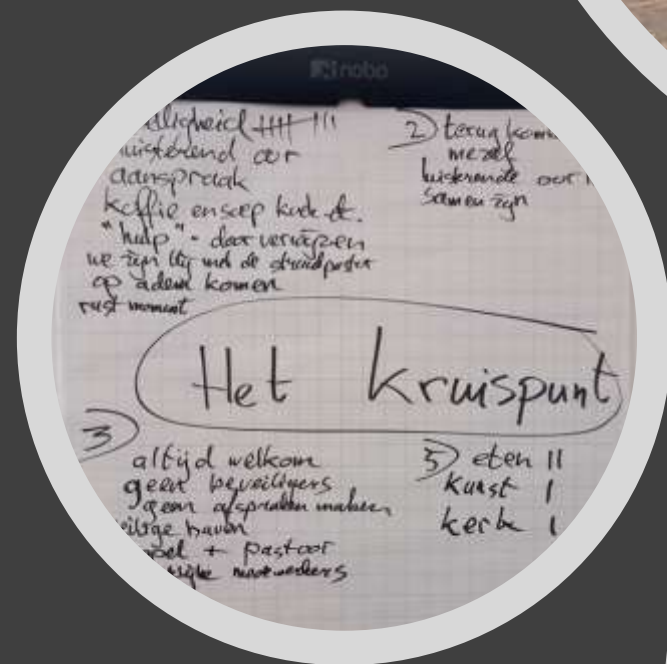 nobo
lligheid 卌 III
uisterend oor
aanspraak
koffie en soep koek etc.
"hulp" - doorverwijzen
we zijn blij met de straatpastor
op adem komen
rust moment
2) terug kom
mezelf
luisterende oor
samen zijn
Het kruispunt
3)
altijd welkom
geen beveiligers
geen afspraken maken
eilige haven
pastoor
medewerkers
5) eten II
kunst I
kerk I